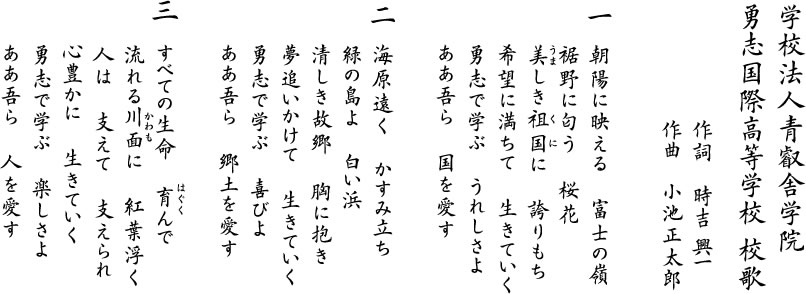 学校法人青叡舎学院
勇志国際高等学校 校歌
作詞 時吉 興一
作曲 小池正太郎
一
朝陽に映える 富士の嶺
裾野に匂う 桜花
美しき祖国に 誇りもち
うま くに
希望に満ちて 生きていく
勇志で学ぶ うれしさよ
ああ吾ら 国を愛す
二
海原遠く かすみ立ち
緑の島よ 白い浜
清しき故郷 胸に抱き
夢追いかけて 生きていく
勇志で学ぶ 喜びよ
ああ吾ら 郷土を愛す
三
すべての生命 育んで
はぐく
流れる川面に 紅葉浮く
かわも
人は 支えて 支えられ
心豊かに 生きていく
勇志で学ぶ 楽しさよ
ああ吾ら 人を愛す